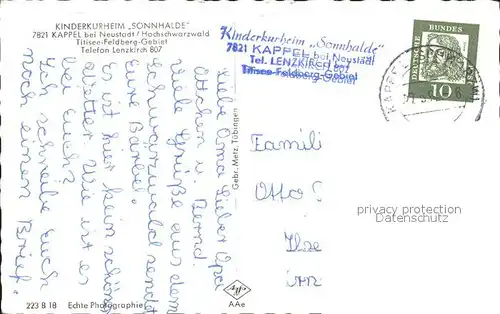 KINDERKURHEIM „SONNHALDE"
7821 KAPPEL bei Neustadt / Hochschwarzwald
Titisee-Feldberg-Gebiet
Telefon Lenzkirch 807
Kinderkurheim „Sonnhalde"
7821 KAPPEL bei Neustadt
Tel. LENZKIRCH 807
Titisee-Feldberg-Gebiet
DEUTSCHE
BUNDES
10
KAPPEL
Liebe Oma, Lieber Opa
Ottchen u. Bernd.
Viele Grüße aus dem
Schwarzwald sendet
Eure Bärbel.
Es ist hier kein schönes
Wetter. Wie ist es
bei Euch?
Ich schreibe Euch
noch einen Brief.
Gebr. Metz, Tübingen
Famili
Otto
privacy protection
Datenschutz
223 B 18 Echte Photographie
Agfa
AAe